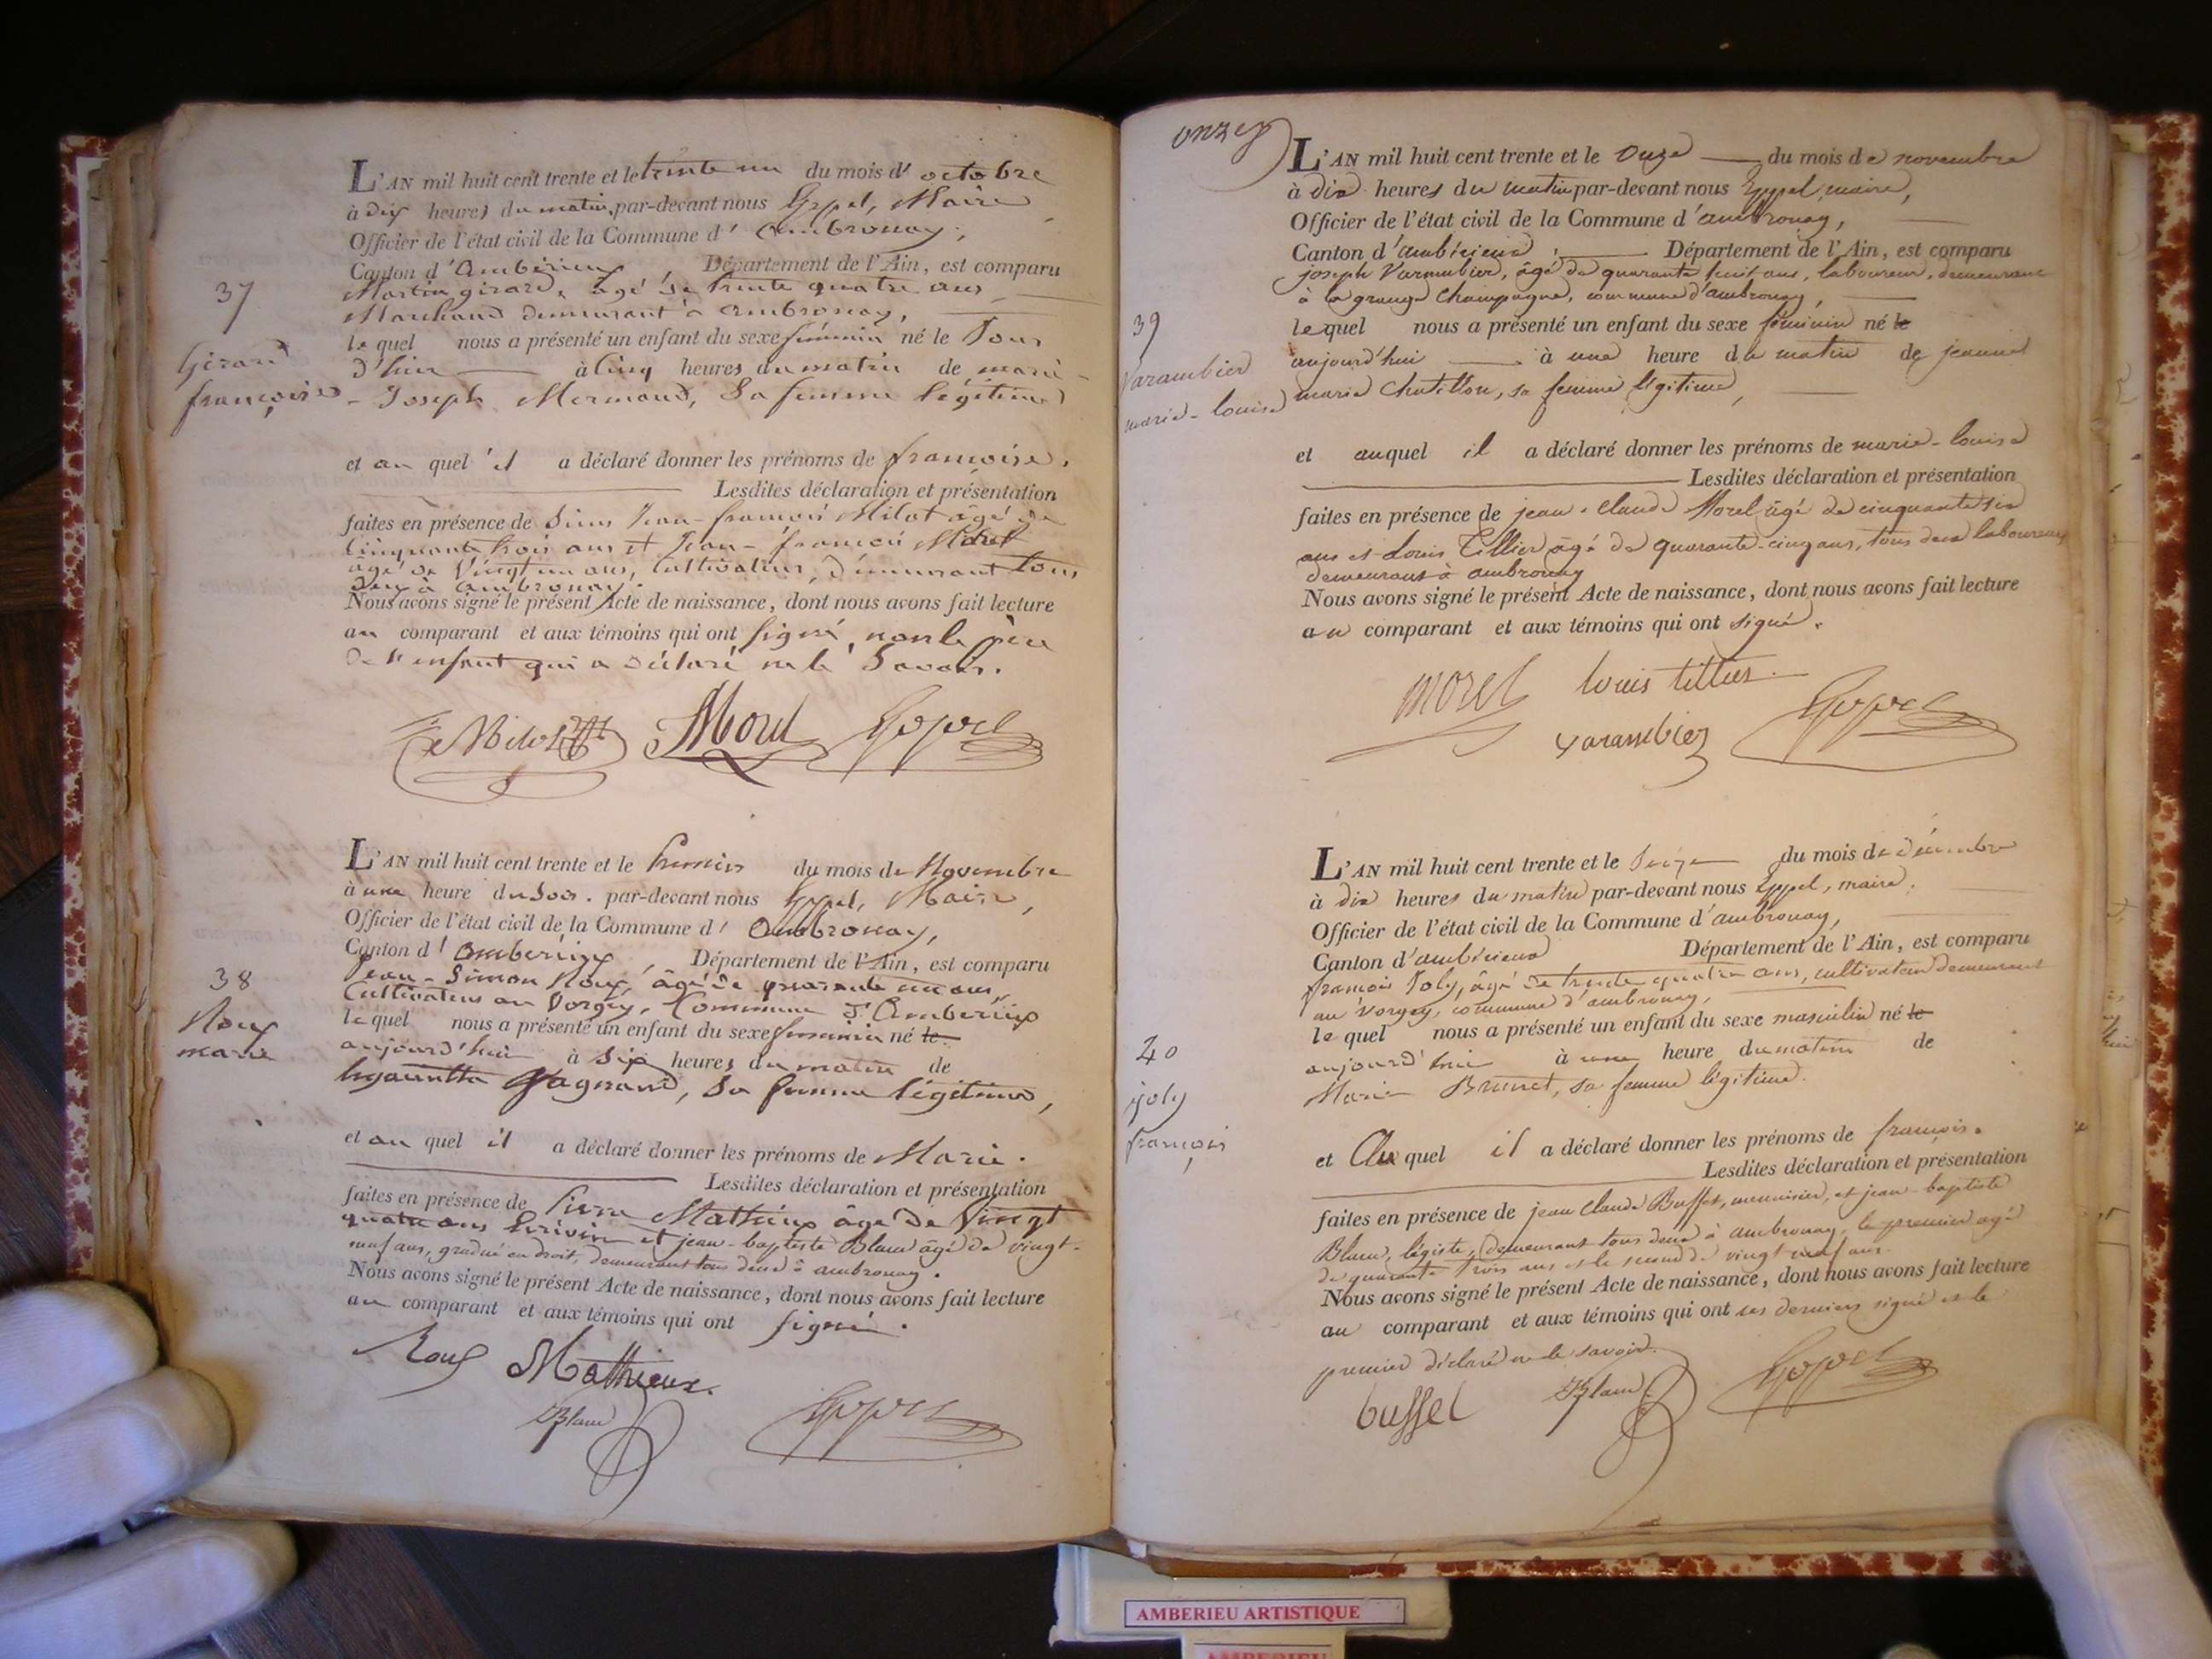 L'AN mil huit cent trente et le trente un du mois d'octobre
à dix heures du matin, par-devant nous Eyppel, Maire
Officier de l'état civil de la Commune d'Ambronay,
Canton d'Ambérieux Département de l'Ain, est comparu
Martin girard, âgé de trente quatre ans
Marchand demeurant à ambronay,
37
le quel nous a présenté un enfant du sexe féminin né le Jour
Girard
d'hier à Cinq heures du matin de marie-
françoise
- Joseph Mermand, Sa femme légitime
et au quel il a déclaré donner les prénoms de françoise.
Lesdites déclaration et présentation
faites en présence de Sieurs Jean-françois Milot âgé de
Cinquante trois ans et Jean-françois Morel
âgé de Vingt un ans, Cultivateurs, demeurant tous
deux à ambronay.
Nous avons signé le présent Acte de naissance, dont nous avons fait lecture
au comparant et aux témoins qui ont signé, non le père
de l'enfant qui a déclaré ne le Savoir.
Milot Morel Eyppel
L'AN mil huit cent trente et le premier du mois de Novembre
à une heure du Soir. par-devant nous Eyppel, Maire,
Officier de l'état civil de la Commune d'Ambronay,
Canton d'amberieux, Département de l'Ain, est comparu
Jean-Simon Roux, âgé de quarante un ans,
Cultivateur au Vorgey, Commune d'Amberieux
38
le quel nous a présenté un enfant du sexe feminin né le
Roux
aujourd'hui à Six heures du matin de
marie
hyacintha Gagnard, Sa femme légitime,
et au quel il a déclaré donner les prénoms de Marie.
Lesdites déclaration et présentation
faites en présence de Pierre Mathieux âgé de Vingt
quatre ans Ecrivain et jean-baptiste Blanc âgé de vingt-
neuf ans, gradué en droit, demeurant tous deux à ambronay.
Nous avons signé le présent Acte de naissance, dont nous avons fait lecture
au comparant et aux témoins qui ont signé.
Roux Mathieux.
Blanc Eyppel
onze
L'AN mil huit cent trente et le Onze du mois de novembre
à dix heures du matin par-devant nous Eyppel, maire,
Officier de l'état civil de la Commune d'ambronay,
Canton d'ambérieux, Département de l'Ain, est comparu
joseph Varambier, âgé de quarante huit ans, laboureur, demeurant
à la grange Champagne, commune d'ambronay,
39
le quel nous a présenté un enfant du sexe féminin né le
Varambier
aujourd'hui à une heure du matin de jeanne
marie-louise
marie Chatillon, sa femme légitime,
et auquel il a déclaré donner les prénoms de marie-louise
Lesdites déclaration et présentation
faites en présence de jean-claude Morel âgé de cinquante six
ans et Louis Tillier âgé de quarante-cinq ans, tous deux laboureurs
demeurans à ambronay
Nous avons signé le présent Acte de naissance, dont nous avons fait lecture
au comparant et aux témoins qui ont signé.
morel louis tillier
varambier Eyppel
L'AN mil huit cent trente et le Seize du mois de décembre
à dix heures du matin par-devant nous Eyppel, maire,
Officier de l'état civil de la Commune d'ambronay,
Canton d'ambérieux Département de l'Ain, est comparu
françois Joly, âgé de trente quatre ans, cultivateur demeurant
au Vorgey, commune d'ambronay,
le quel nous a présenté un enfant du sexe masculin né le
40
aujourd'hui à une heure du matin de
joly
Marie Brunet, sa femme légitime.
françois
et Au quel il a déclaré donner les prénoms de françois.
Lesdites déclaration et présentation
faites en présence de jean Claude Buffet, menuisier, et jean-baptiste
Blanc, légiste, demeurant tous deux à ambronay, le premier agé
de quarante trois ans et le second de vingt neuf ans.
Nous avons signé le présent Acte de naissance, dont nous avons fait lecture
au comparant et aux témoins qui ont ces derniers signé et le
premier déclaré ne le savoir.
buffet Blanc Eyppel
AMBERIEU ARTISTIQUE
AMBERIEU